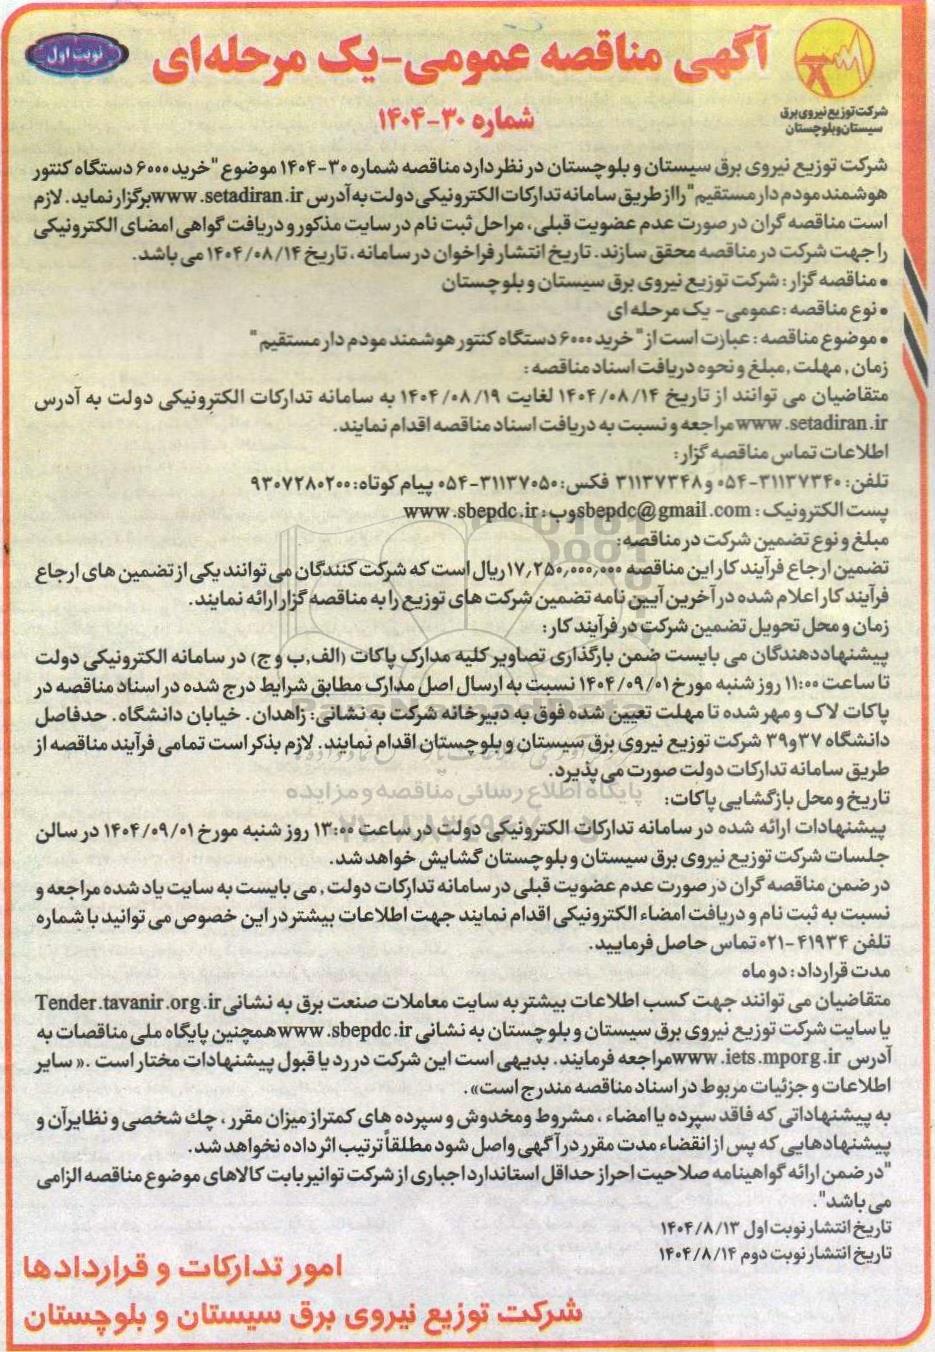 آگهی مناقصه عمومی-یک مرحله‌ای
نوبت اول
شرکت توزیع نیروی برق
سیستان و بلوچستان
شماره ۳۰-۱۴۰۴
شرکت توزیع نیروی برق سیستان و بلوچستان در نظر دارد مناقصه شماره ۳۰-۱۴۰۴ موضوع "خرید ۶۰۰۰ دستگاه کنتور
هوشمند مودم دار مستقیم" را از طریق سامانه تدارکات الکترونیکی دولت به آدرس www.setadiran.ir برگزار نماید. لازم
است مناقصه گران در صورت عدم عضویت قبلی، مراحل ثبت نام در سایت مذکور و دریافت گواهی امضای الکترونیکی
را جهت شرکت در مناقصه محقق سازند. تاریخ انتشار فراخوان در سامانه، تاریخ ۱۴۰۴/۰۸/۱۴ می باشد.
• مناقصه گزار: شرکت توزیع نیروی برق سیستان و بلوچستان
• نوع مناقصه: عمومی- یک مرحله ای
• موضوع مناقصه: عبارت است از "خرید ۶۰۰۰ دستگاه کنتور هوشمند مودم دار مستقیم"
زمان، مهلت، مبلغ و نحوه دریافت اسناد مناقصه:
متقاضیان می توانند از تاریخ ۱۴۰۴/۰۸/۱۴ لغایت ۱۴۰۴/۰۸/۱۹ به سامانه تدارکات الکترونیکی دولت به آدرس
www.setadiran.ir مراجعه و نسبت به دریافت اسناد مناقصه اقدام نمایند.
اطلاعات تماس مناقصه گزار:
تلفن: ۳۱۱۳۷۳۴۰-۰۵۴ و ۳۱۱۳۷۳۴۸ فکس: ۳۱۱۳۷۰۵۰-۰۵۴ پیام کوتاه: ۹۳۰۷۲۸۰۲۰۰
پست الکترونیک: sbepdc@gmail.com وب: www.sbepdc.ir
مبلغ و نوع تضمین شرکت در مناقصه:
تضمین ارجاع فرآیند کار این مناقصه ۱۷,۲۵۰,۰۰۰,۰۰۰ ریال است که شرکت کنندگان می توانند یکی از تضمین های ارجاع
فرآیند کار اعلام شده در آخرین آیین نامه تضمین شرکت های توزیع را به مناقصه گزار ارائه نمایند.
زمان و محل تحویل تضمین شرکت در فرآیند کار:
پیشنهاددهندگان می بایست ضمن بارگذاری تصاویر کلیه مدارک پاکات (الف,ب و ج) در سامانه الکترونیکی دولت
تا ساعت ۱۱:۰۰ روز شنبه مورخ ۱۴۰۴/۰۹/۰۱ نسبت به ارسال اصل مدارک مطابق شرایط درج شده در اسناد مناقصه در
پاکات لاک و مهر شده تا مهلت تعیین شده فوق به دبیرخانه شرکت به نشانی: زاهدان. خیابان دانشگاه. حدفاصل
دانشگاه ۳۷ و ۳۹ شرکت توزیع نیروی برق سیستان و بلوچستان اقدام نمایند. لازم بذکر است تمامی فرآیند مناقصه از
طریق سامانه تدارکات دولت صورت می پذیرد.
تاریخ و محل بازگشایی پاکات:
پیشنهادات ارائه شده در سامانه تدارکات الکترونیکی دولت در ساعت ۱۳:۰۰ روز شنبه مورخ ۱۴۰۴/۰۹/۰۱ در سالن
جلسات شرکت توزیع نیروی برق سیستان و بلوچستان گشایش خواهد شد.
در ضمن مناقصه گران در صورت عدم عضویت قبلی در سامانه تدارکات دولت، می بایست به سایت یاد شده مراجعه و
نسبت به ثبت نام و دریافت امضاء الکترونیکی اقدام نمایند جهت اطلاعات بیشتر در این خصوص می توانید با شماره
تلفن ۴۱۹۳۴-۰۲۱ تماس حاصل فرمایید.
مدت قرارداد: دو ماه
متقاضیان می توانند جهت کسب اطلاعات بیشتر به سایت معاملات صنعت برق به نشانی Tender.tavanir.org.ir
یا سایت شرکت توزیع نیروی برق سیستان و بلوچستان به نشانی www.sbepdc.ir همچنین پایگاه ملی مناقصات به
آدرس www.iets.mporg.ir مراجعه فرمایند. بدیهی است این شرکت در رد یا قبول پیشنهادات مختار است. «سایر
اطلاعات و جزئیات مربوط در اسناد مناقصه مندرج است».
به پیشنهاداتی که فاقد سپرده یا امضاء، مشروط و مخدوش و سپرده های کمتر از میزان مقرر، چك شخصی و نظایر آن و
پیشنهادهایی که پس از انقضاء مدت مقرر در آگهی واصل شود مطلقاً ترتیب اثر داده نخواهد شد.
"در ضمن ارائه گواهینامه صلاحیت احراز حداقل استاندارد اجباری از شرکت توانیر بابت کالاهای موضوع مناقصه الزامی
می باشد".
تاریخ انتشار نوبت اول ۱۴۰۴/۸/۱۳
تاریخ انتشار نوبت دوم ۱۴۰۴/۸/۱۴
امور تدارکات و قراردادها
شرکت توزیع نیروی برق سیستان و بلوچستان
پایگاه اطلاع رسانی مناقصه و مزایده